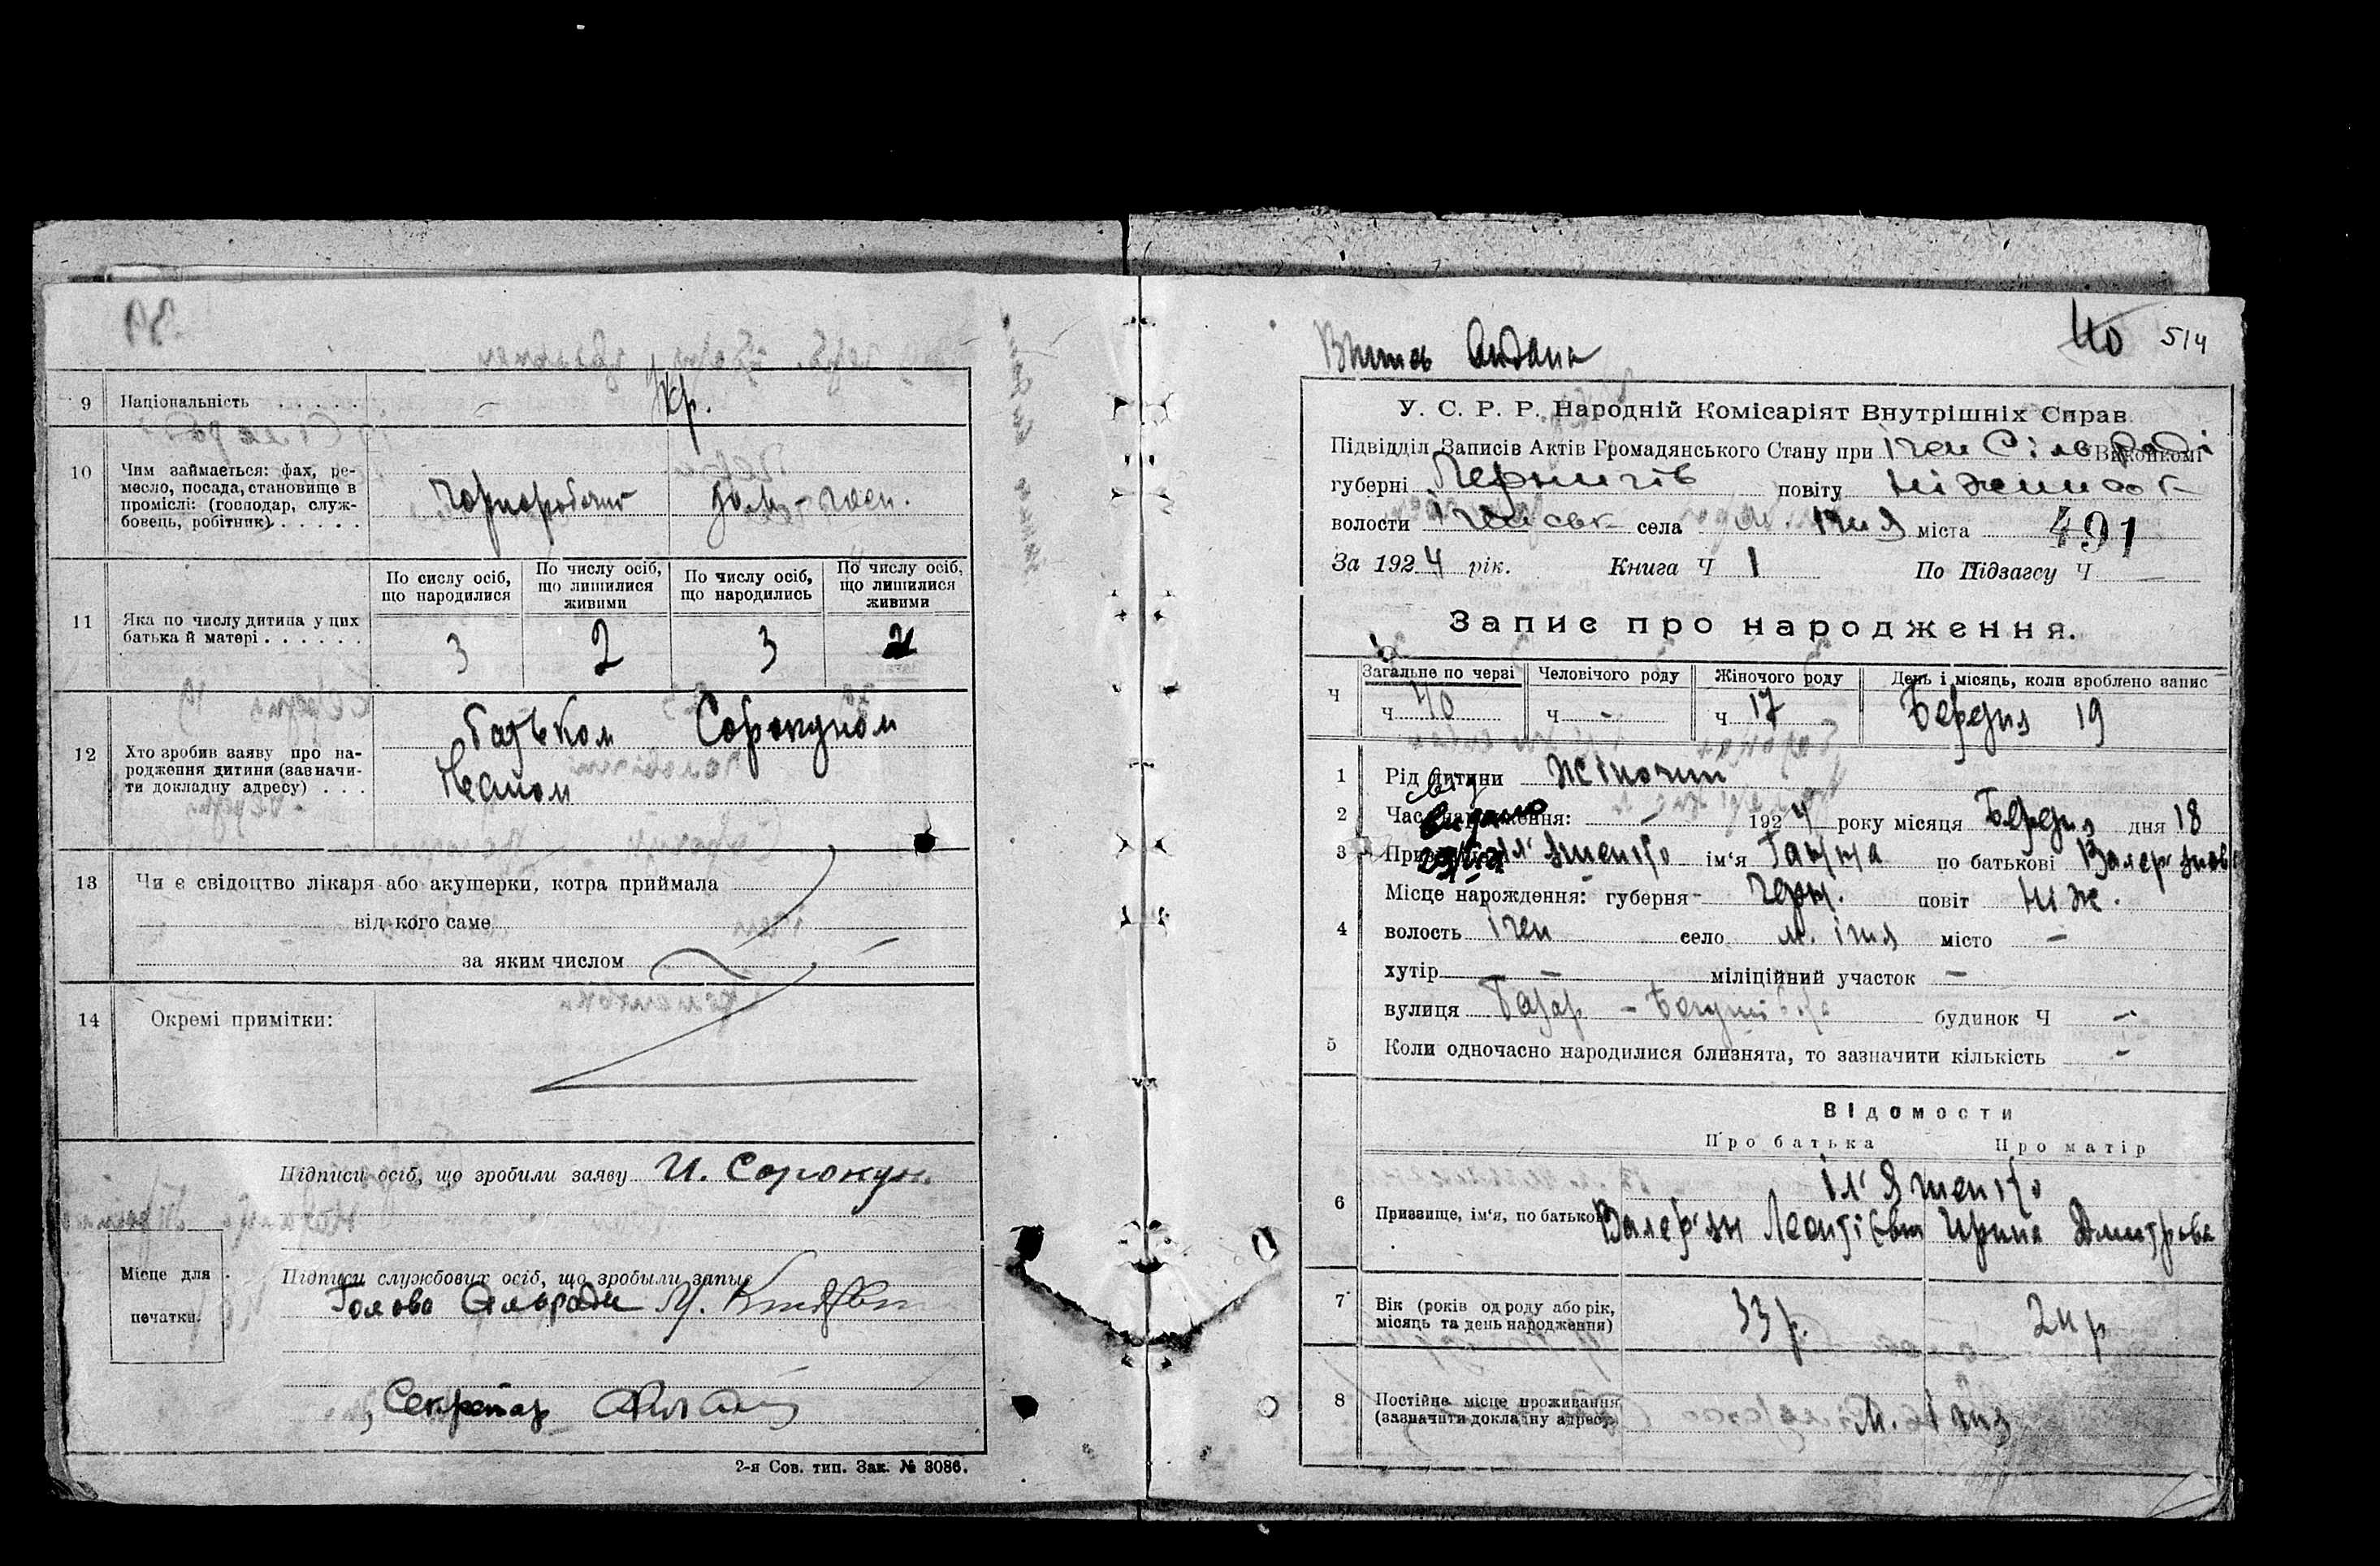 9 Національність . . . . . Укр.
10 Чим займається: фах, ре-
месло, посада, становище в
промислі: (господар, служ-
бовець, робітник) . . . . .
чорнороб дом-госп.
По сислу осіб, що народилися
По числу осіб, що лишилися живими
По числу осіб, що народились
По числу осіб, що лишилися живими
11 Яка по числу дитина у цих
батька й матері . . . . . .
3 2 3 2
12 Хто зробив заяву про на-
родження дитини (зазначи-
ти докладну адресу) . . .
батьком Сорокуном
Іваном
13 Чи є свідоцтво лікаря або акушерки, котра приймала
від кого саме
за яким числом
14 Окремі примітки:
Підписи осіб, що зробили заяву И. Сорокун
Підписи службових осіб, що зробыли запыс
Голова Сільради М.
Місце для
печатки.
Секретар
2-я Сов. тип. Зак. № 3086.
40 514
Випись видана
У. С. Р. Р. Народній Комісаріят Внутрішніх Справ.
Підвідділ Записів Актів Громадянського Стану при Ічен Сільраді Виконкомі
губерні Чернигів повіту Ніжинськ
волости Іченськ села м. Ічня міста 491
За 1924 рік. Книга Ч 1 По Підзагсу Ч —
Запис про народження.
Ч Загальне по черзі Человічого роду Жіночого роду День і місяць, коли вроблено запис
Ч 40 Ч - Ч 17 Березня 19
1 Рід дитини Жіночий
2 Час народження: 1924 року місяця Березня дня 18
видано
3 Призвище Іл'яшенко ім'я Ганна по батькові Валер'янов
Місце нарождення: губерня Черн. повіт Ніж.
4 волость Ічен село м. Ічня місто —
хутір — міліційний участок —
вулиця будинок Ч —
5 Коли одночасно народилися близнята, то зазначити кількість —
Відомости
Про батька Про матір
Іл'яшенко
6 Призвище, ім'я, по батькові Валер'ян Леонтієвич Ирина Дмитрова
7 Вік (років од роду або рік,
місяць та день народження)
33 р. 24 р
8 Постійне місце проживання
(зазначити докладну адресу)
м. Ічня